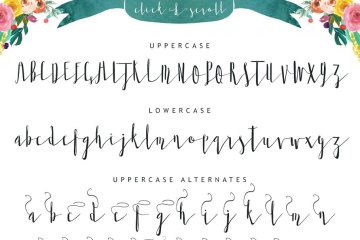 click & scroll
UPPERCASE
ABCDEFGHIJKLMNOPQRSTUVWXYZ
LOWERCASE
abcdefghijklmnopqrstuvwxyz
UPPERCASE ALTERNATES
a b c d e f g h i j k l m n